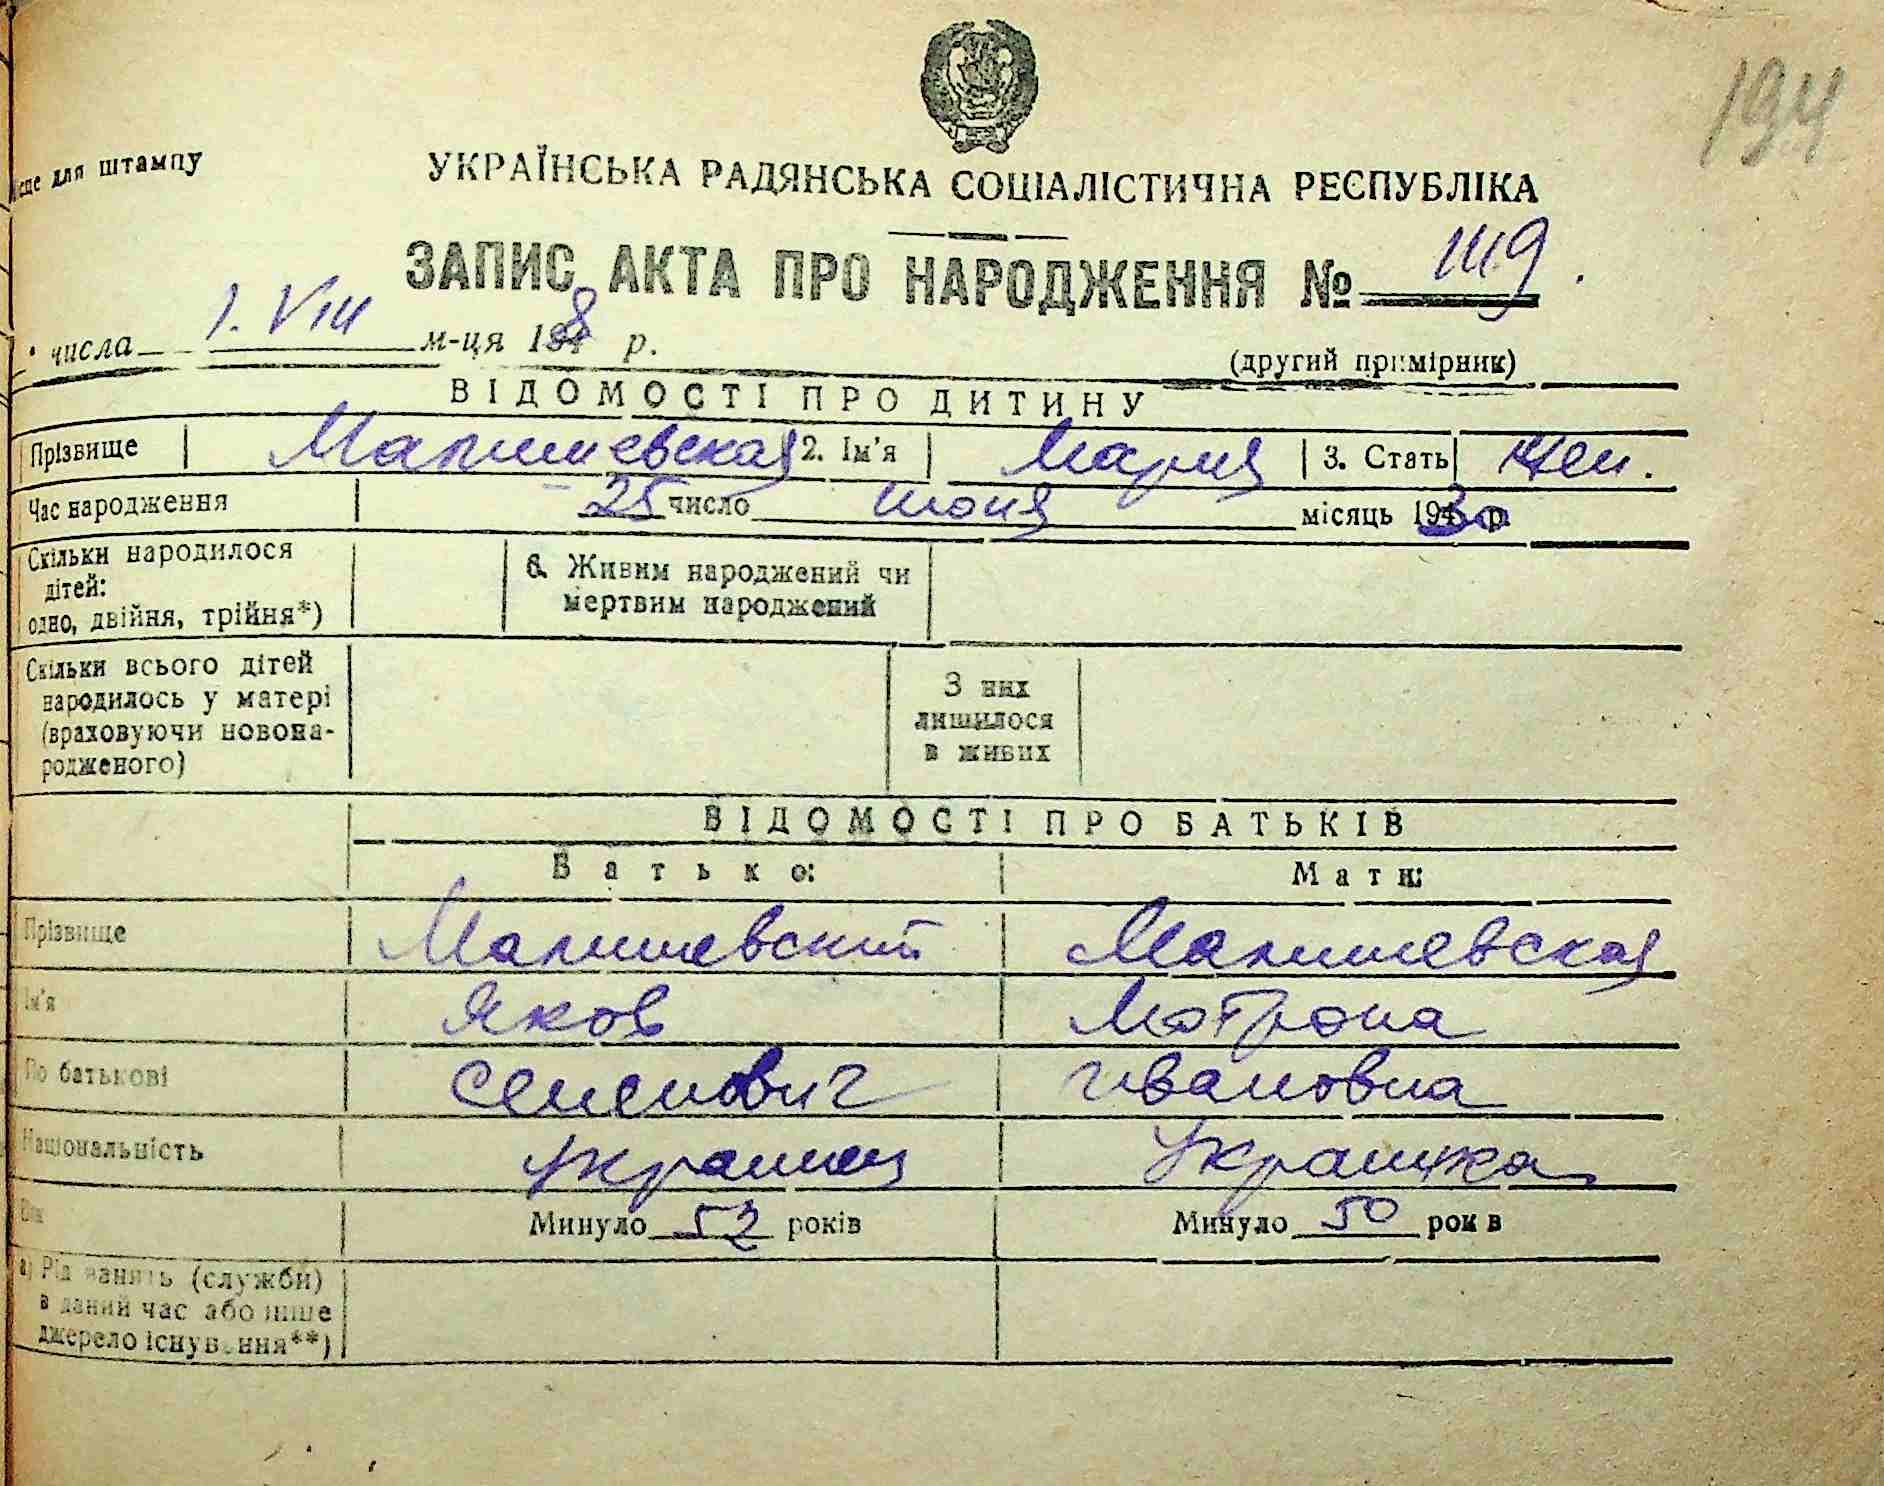 194
місце для штампу
УКРАЇНСЬКА РАДЯНСЬКА СОЦІАЛІСТИЧНА РЕСПУБЛІКА
ЗАПИС АКТА ПРО НАРОДЖЕННЯ № 1119.
числа 1. VIII м-ця 1948 р.
(другий примірник)
ВІДОМОСТІ ПРО ДИТИНУ
Прізвище Малишевская 2. Ім'я Мария 3. Стать Жен.
Час народження 25 число июня місяць 1930 р.
Скільки народилося дітей: одно, двійня, трійня*)
6. Живим народжений чи мертвим народжений
Скільки всього дітей народилось у матері (враховуючи новона-родженого)
З них лишилося в живих
ВІДОМОСТІ ПРО БАТЬКІВ
Батько: Мати:
Прізвище Малишевский Малишевская
Ім'я Яков Мотрона
По батькові Семенович Ивановна
Національність украинец Украинка
Вік Минуло 52 років Минуло 50 років
а) Рід занять (служби) в даний час або інше джерело існування**)